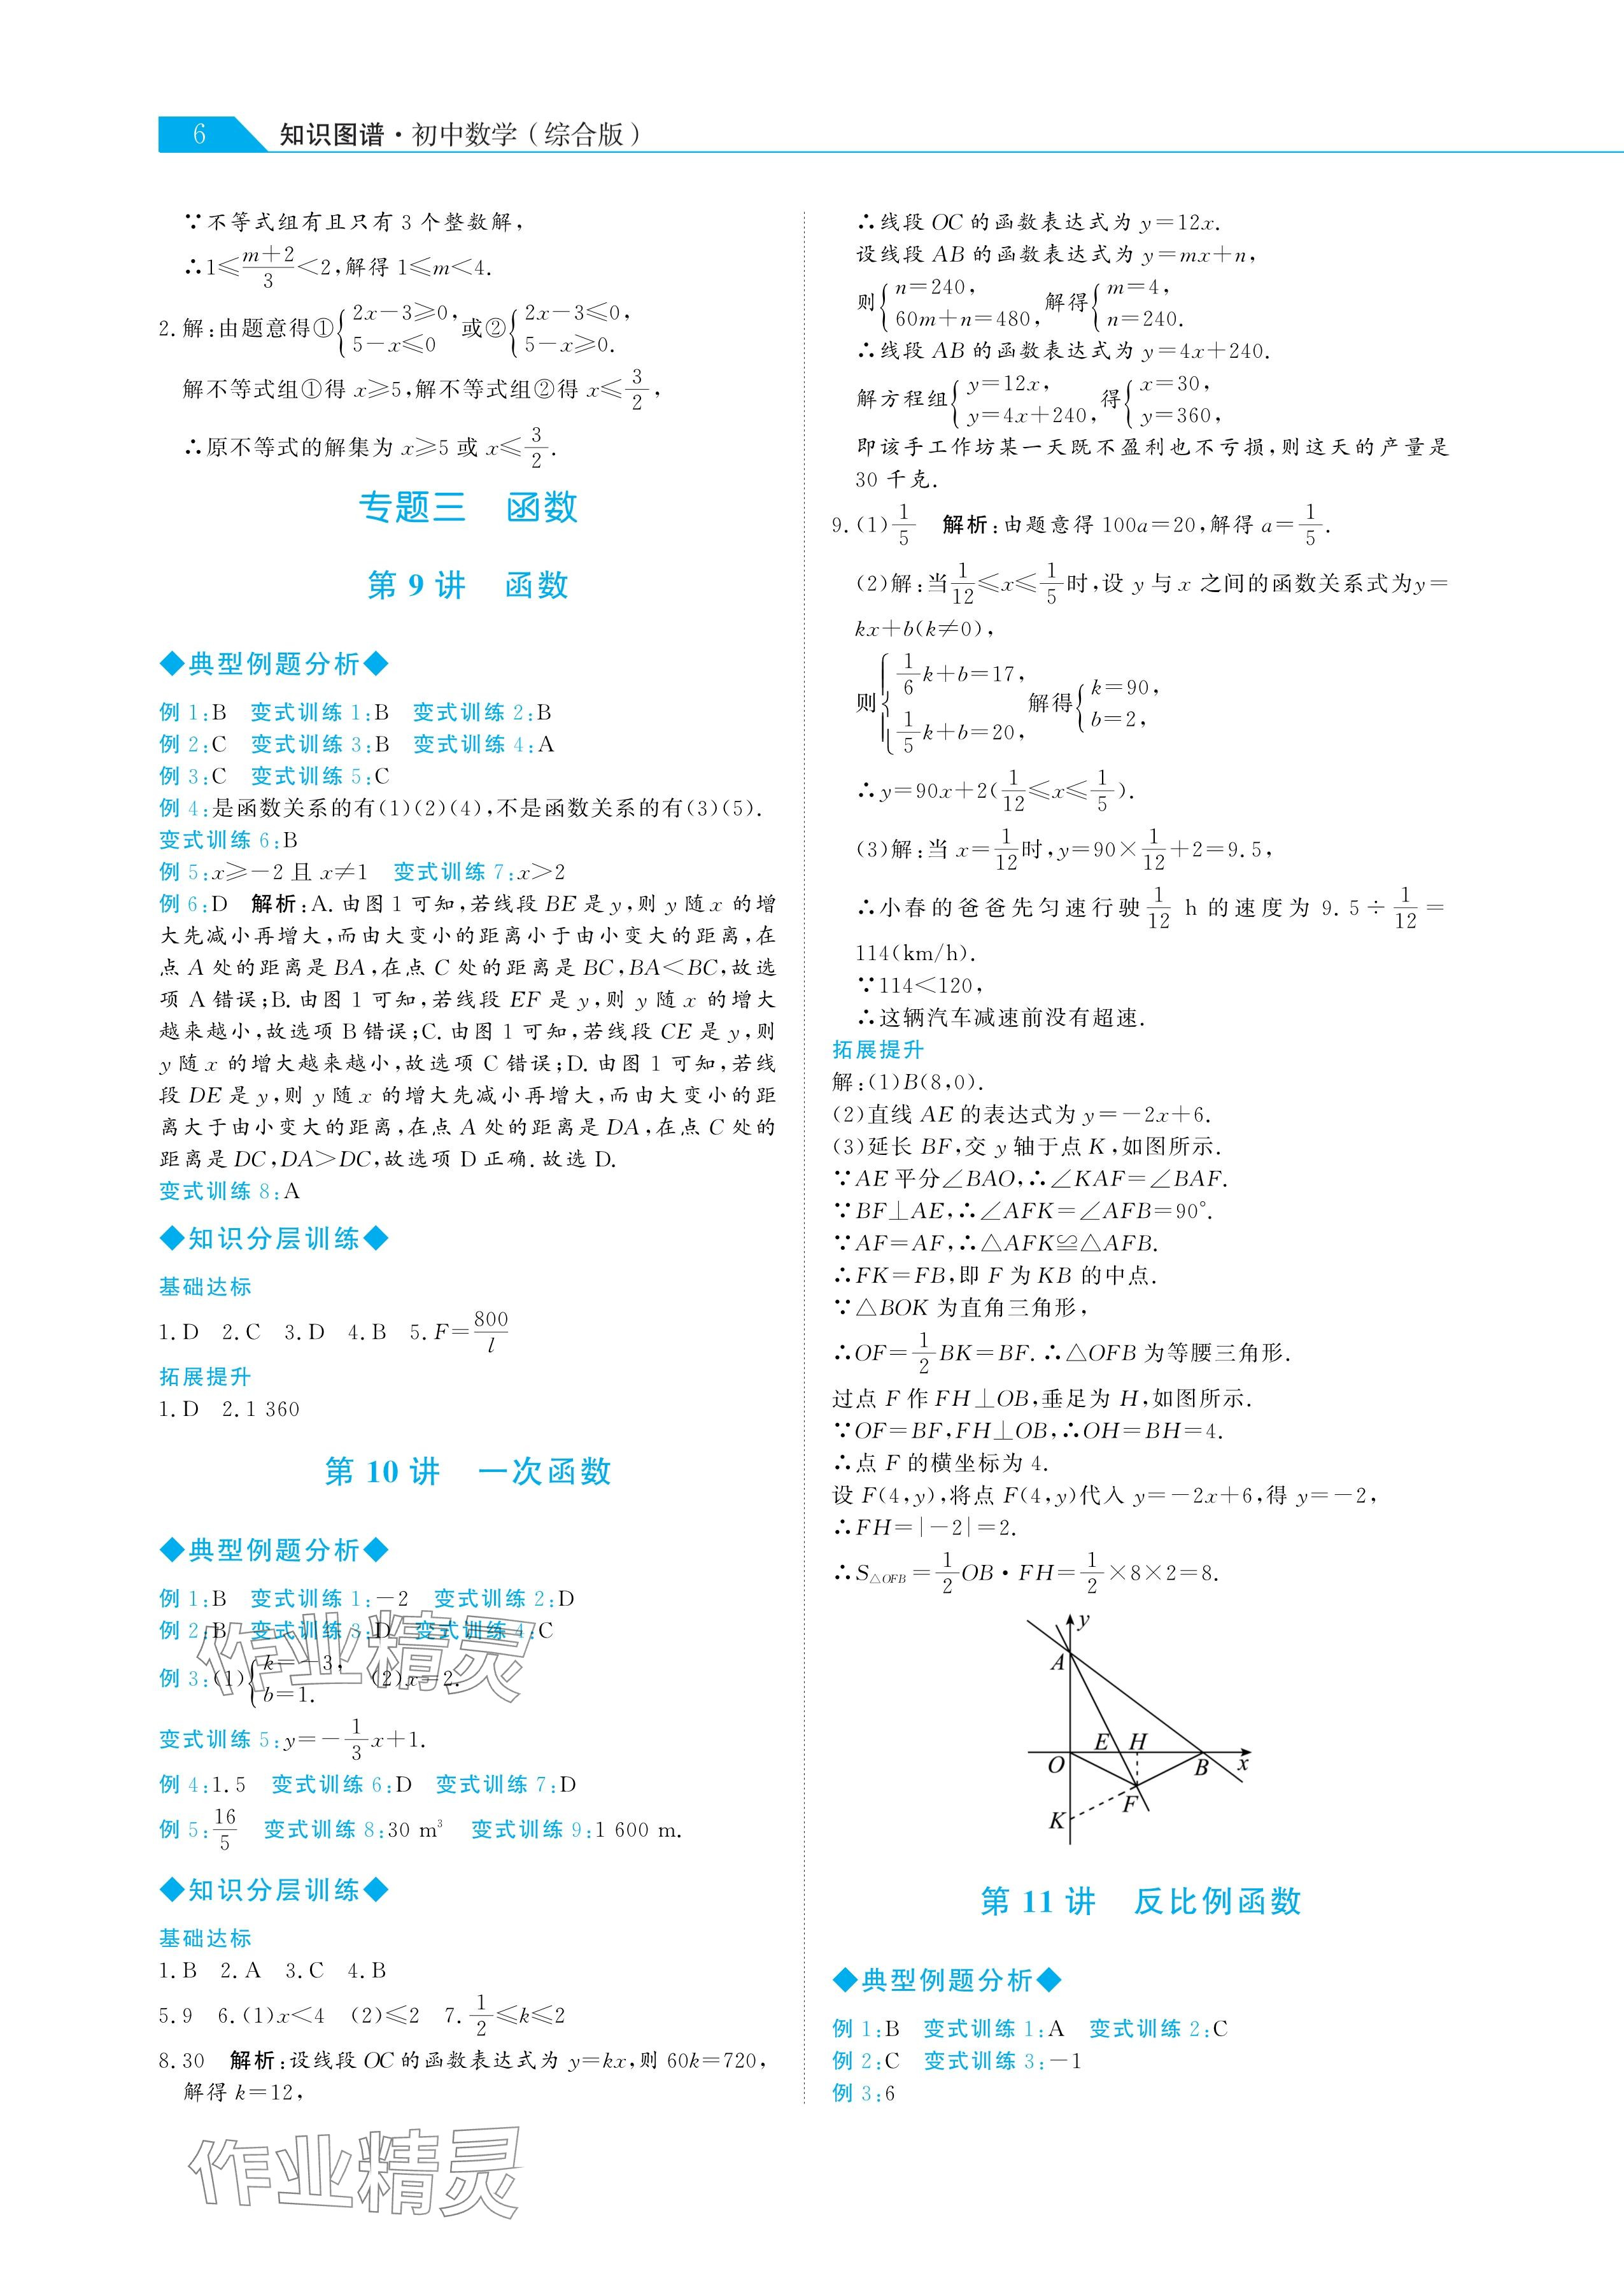 6 知识图谱·初中数学(综合版)
∵不等式组有且只有3个整数解,
∴1≤(m+2)/3<2,解得1≤m<4.
2.解:由题意得①{2x-3≥0, 5-x≤0 或②{2x-3≤0, 5-x≥0.
解不等式组①得x≥5,解不等式组②得x≤3/2,
∴原不等式的解集为x≥5或x≤3/2.
专题三 函数
第9讲 函数
◆典型例题分析◆
例1:B 变式训练1:B 变式训练2:B
例2:C 变式训练3:B 变式训练4:A
例3:C 变式训练5:C
例4:是函数关系的有(1)(2)(4),不是函数关系的有(3)(5).
变式训练6:B
例5:x≥-2且x≠1 变式训练7:x>2
例6:D 解析:A.由图1可知,若线段BE是y,则y随x的增
大先减小再增大,而由大变小的距离小于由小变大的距离,在
点A处的距离是BA,在点C处的距离是BC,BA<BC,故选
项A错误;B.由图1可知,若线段EF是y,则y随x的增大
越来越小,故选项B错误;C.由图1可知,若线段CE是y,则
y随x的增大越来越小,故选项C错误;D.由图1可知,若线
段DE是y,则y随x的增大先减小再增大,而由大变小的距
离大于由小变大的距离,在点A处的距离是DA,在点C处的
距离是DC,DA>DC,故选项D正确.故选D.
变式训练8:A
◆知识分层训练◆
基础达标
1.D 2.C 3.D 4.B 5.F=800/l
拓展提升
1.D 2.1 360
第10讲 一次函数
◆典型例题分析◆
例1:B 变式训练1:-2 变式训练2:D
例2:B 变式训练3:D 变式训练4:C
例3:(1){k=-3, b=1. (2)x=2.
变式训练5:y=-1/3x+1.
例4:1.5 变式训练6:D 变式训练7:D
例5:16/5 变式训练8:30 m³ 变式训练9:1 600 m.
◆知识分层训练◆
基础达标
1.B 2.A 3.C 4.B
5.9 6.(1)x<4 (2)≤2 7.1/2≤k≤2
8.30 解析:设线段OC的函数表达式为y=kx,则60k=720,
解得k=12,
∴线段OC的函数表达式为y=12x.
设线段AB的函数表达式为y=mx+n,
则{n=240, 60m+n=480, 解得{m=4, n=240.
∴线段AB的函数表达式为y=4x+240.
解方程组{y=12x, y=4x+240, 得{x=30, y=360,
即该手工作坊某一天既不盈利也不亏损,则这天的产量是
30千克.
9.(1)1/5 解析:由题意得100a=20,解得a=1/5.
(2)解:当1/12≤x≤1/5时,设y与x之间的函数关系式为y=
kx+b(k≠0),
则{1/6k+b=17, 1/5k+b=20, 解得{k=90, b=2,
∴y=90x+2(1/12≤x≤1/5).
(3)解:当x=1/12时,y=90×1/12+2=9.5,
∴小春的爸爸先匀速行驶1/12 h的速度为9.5÷1/12=
114(km/h).
∵114<120,
∴这辆汽车减速前没有超速.
拓展提升
解:(1)B(8,0).
(2)直线AE的表达式为y=-2x+6.
(3)延长BF,交y轴于点K,如图所示.
∵AE平分∠BAO,∴∠KAF=∠BAF.
∵BF⊥AE,∴∠AFK=∠AFB=90°.
∵AF=AF,∴△AFK≌△AFB.
∴FK=FB,即F为KB的中点.
∵△BOK为直角三角形,
∴OF=1/2BK=BF.∴△OFB为等腰三角形.
过点F作FH⊥OB,垂足为H,如图所示.
∵OF=BF,FH⊥OB,∴OH=BH=4.
∴点F的横坐标为4.
设F(4,y),将点F(4,y)代入y=-2x+6,得y=-2,
∴FH=|-2|=2.
∴S△OFB=1/2OB·FH=1/2×8×2=8.
y
A
E H
O B x
F
K
第11讲 反比例函数
◆典型例题分析◆
例1:B 变式训练1:A 变式训练2:C
例2:C 变式训练3:-1
例3:6
作业精灵
作业精灵